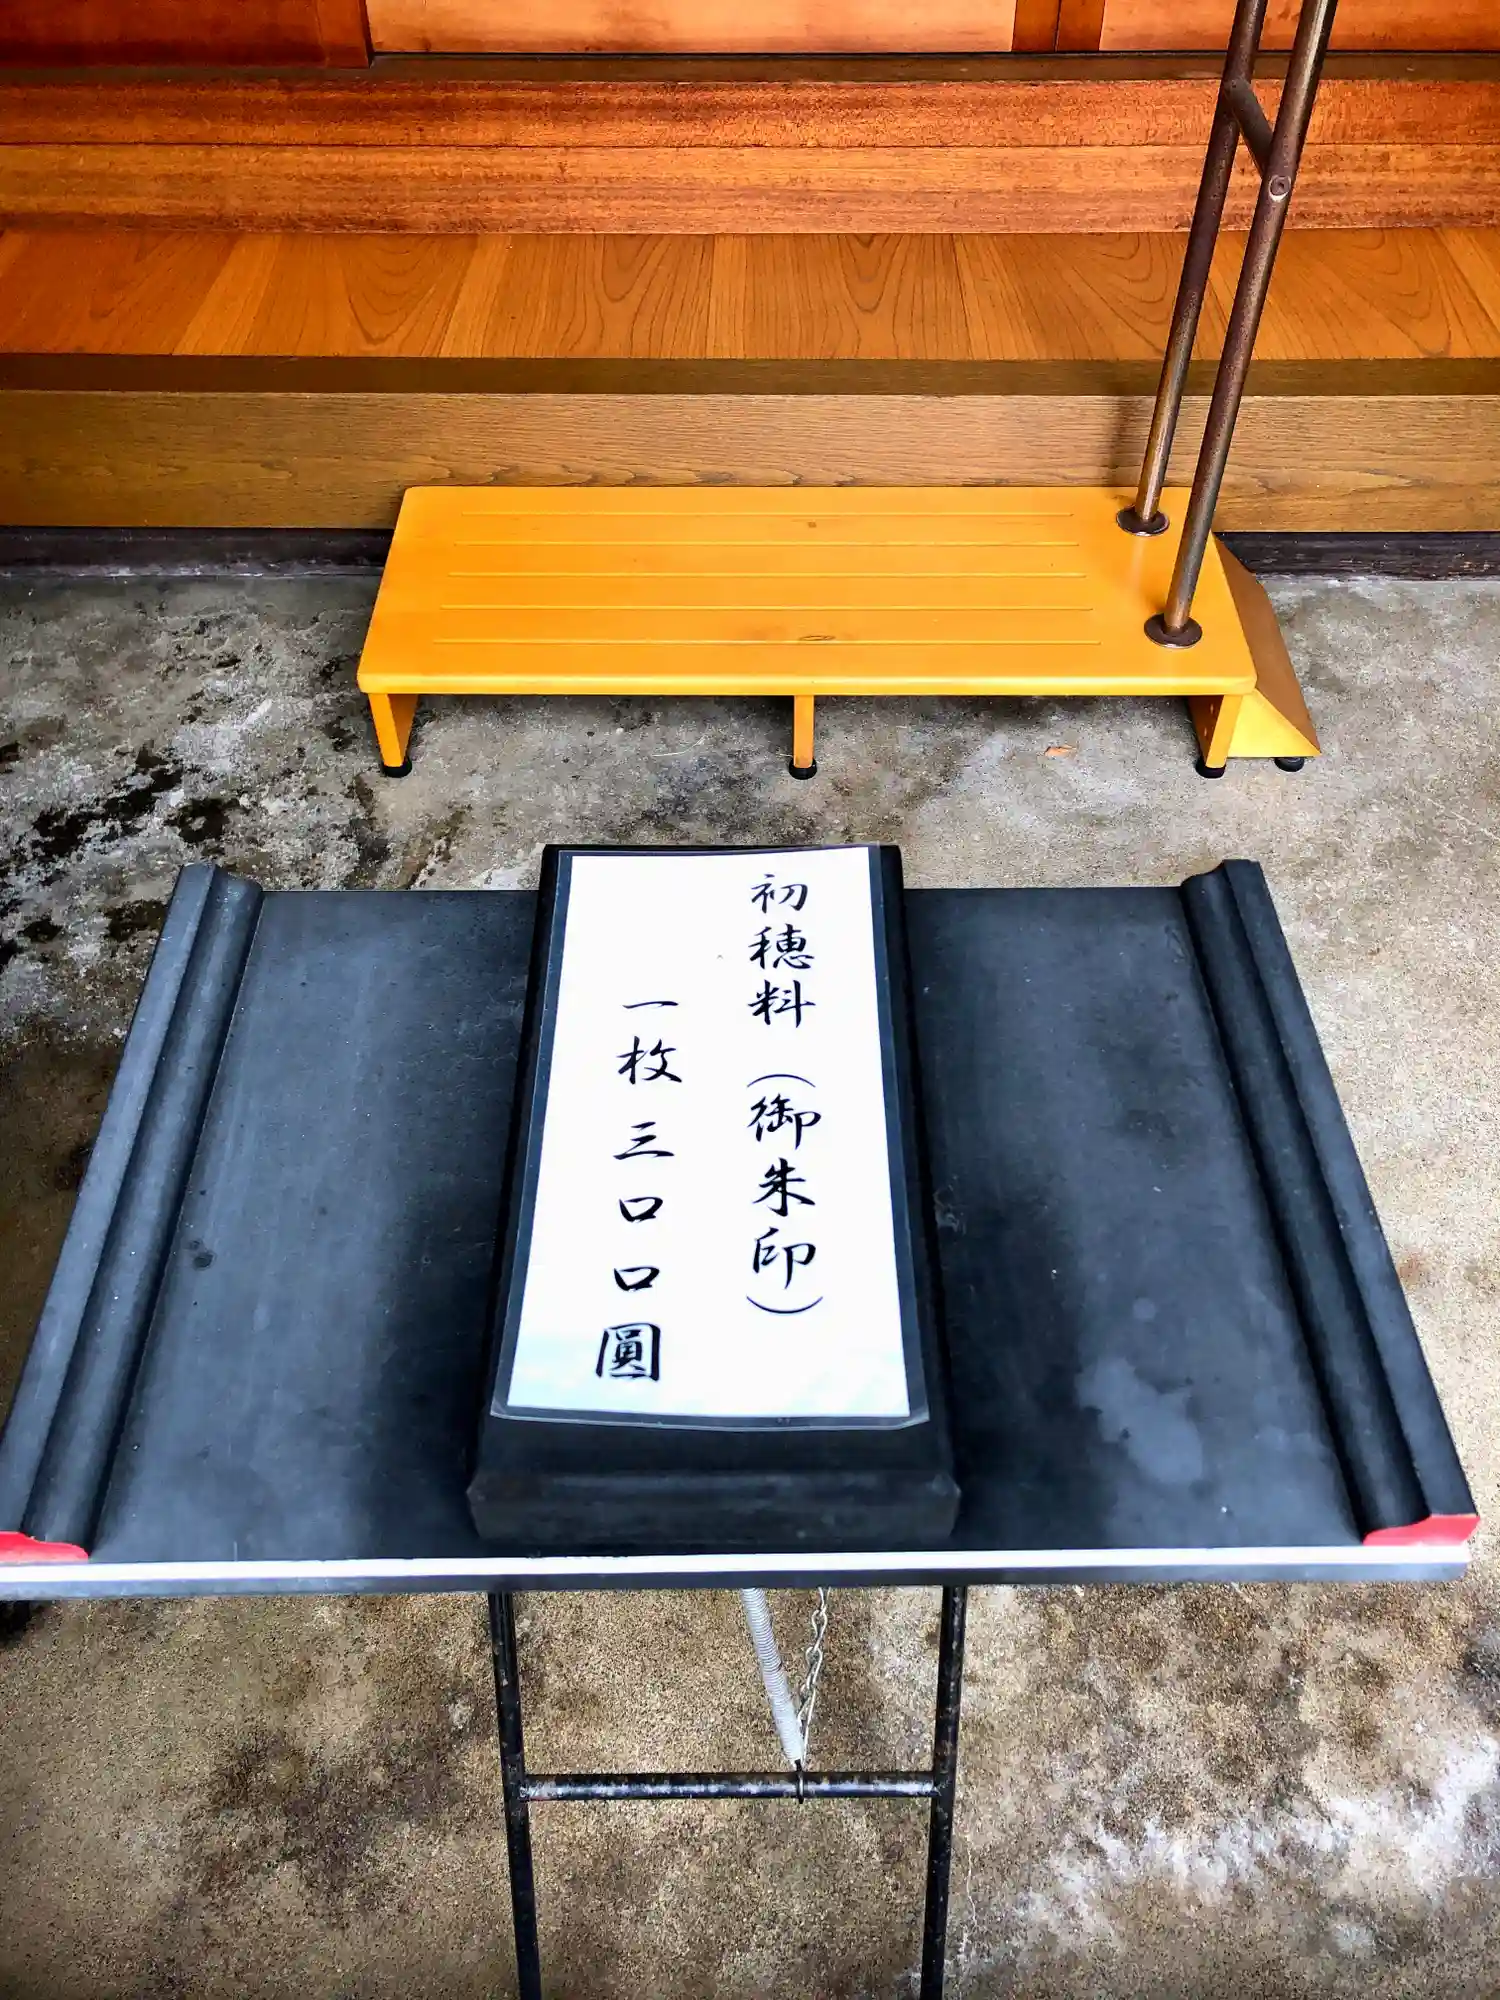 初穂料（御朱印）
一枚三口口圓